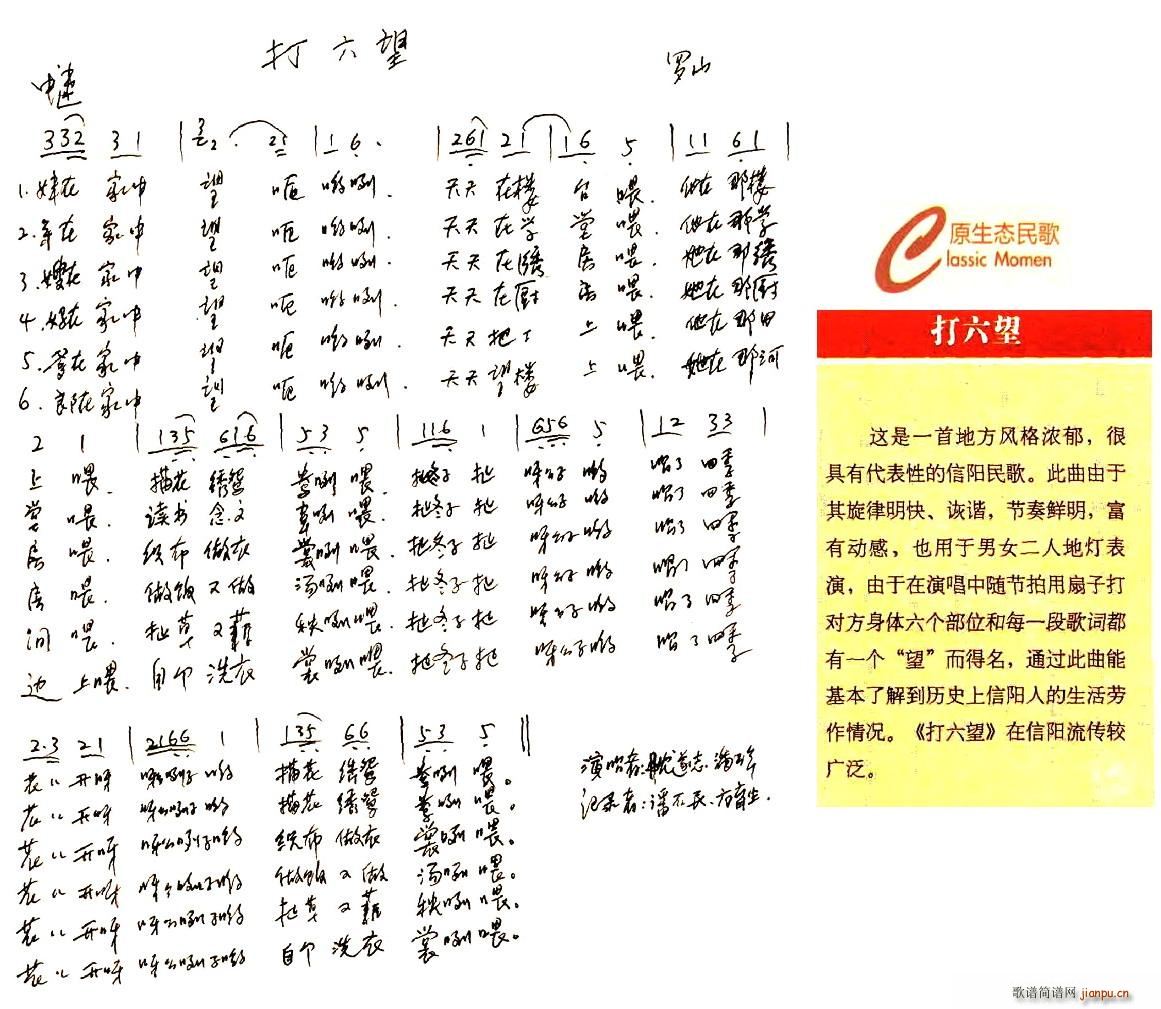 打六望
中速
罗山
332 31 | 32. 21 | 16. | 261 21 | 16 5 | 11 61 |
1. 在家中 望 呃 哟咧. 天天在楼 台 喂. 他在那楼
2. 在家中 望 呃 哟咧. 天天在学 堂 喂. 他在那学
3. 嫂在家中 望 呃 哟咧. 天天在绣 房 喂. 她在那绣
4. 在家中 望 呃 哟咧. 天天在厨 房 喂. 她在那厨
5. 爹在家中 望 呃 哟咧. 天天把 上 喂. 他在那田
6. 在家中 望 呃 哟咧. 天天望楼 上 喂. 她在那河
2 1 | 135 616 | 53 5 | 116 1 | 656 5 | 12 33 |
上 喂. 描花 绣鸳 鸯咧 喂. 把冬子 把 呀公子 哟 唱了 四季
堂 喂. 读书 念文 章咧 喂. 把冬子 把 呀公子 哟 唱了 四季
房 喂. 织布 做衣 裳咧 喂. 把冬子 把 呀公子 哟 唱了 四季
房 喂. 做饭 又做 汤咧 喂. 把冬子 把 呀公子 哟 唱了 四季
间 喂. 扯草 又薅 秧咧 喂. 把冬子 把 呀公子 哟 唱了 四季
边 上喂. 自个 洗衣 裳咧 喂. 把冬子 把 呀公子 哟 唱了 四季
2.3 21 | 2166 1 | 135 66 | 53 5 ||
花儿 开呀 呀公咧子 哟 描花 绣鸳 鸯咧 喂。
花儿 开呀 呀公咧子 哟 描花 绣鸳 鸯咧 喂。
花儿 开呀 呀公咧子 哟 织布 做衣 裳咧 喂。
花儿 开呀 呀公咧子 哟 做饭 又做 汤咧 喂。
花儿 开呀 呀公咧子 哟 扯草 又薅 秧咧 喂。
花儿 开呀 呀公咧子 哟 自个 洗衣 裳咧 喂。
演唱者:
记录者:
原生态民歌
Classic Momen
打六望
这是一首地方风格浓郁，很
具有代表性的信阳民歌。此曲由于
其旋律明快、诙谐，节奏鲜明，富
有动感，也用于男女二人地灯表
演，由于在演唱中随节拍用扇子打
对方身体六个部位和每一段歌词都
有一个“望”而得名，通过此曲能
基本了解到历史上信阳人的生活劳
作情况。《打六望》在信阳流传较
广泛。
歌谱简谱网 jianpu.cn